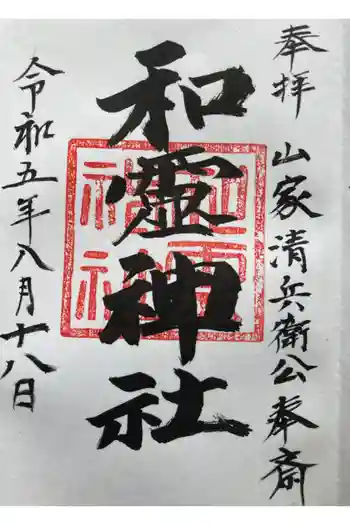 奉拝 山家清兵衛公奉斎
和霊神社
令和五年八月十八日
和霊神社